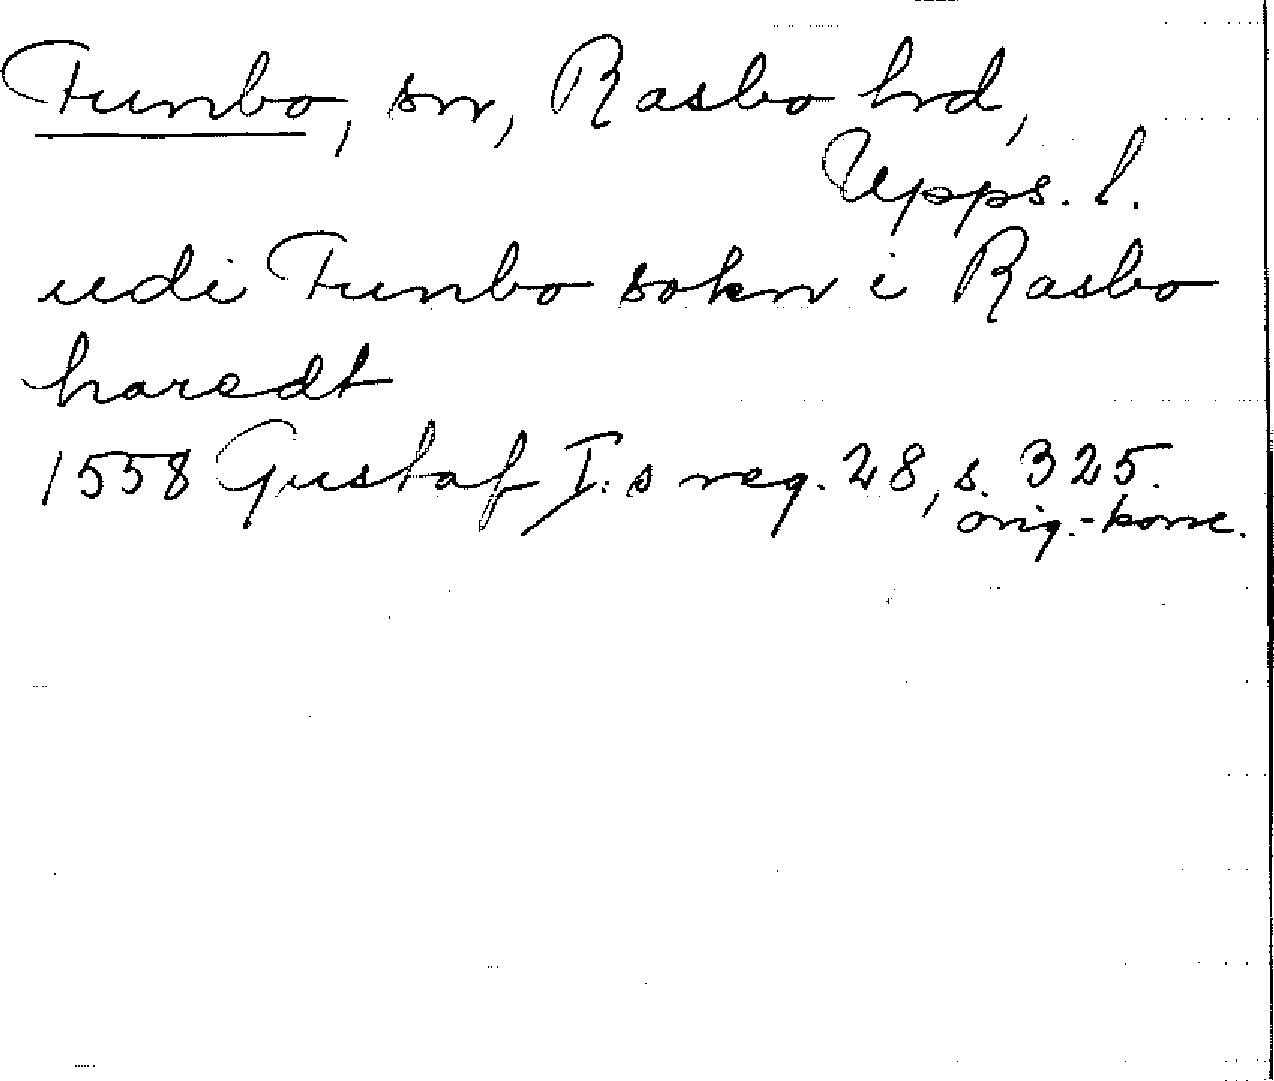 Funbo, sn, Rasbo hrd,
Upps. l.
udi Funbo sokn i Rasbo
haredt
1558 Gustaf I:s reg. 28, s. 325.
orig.-konc.